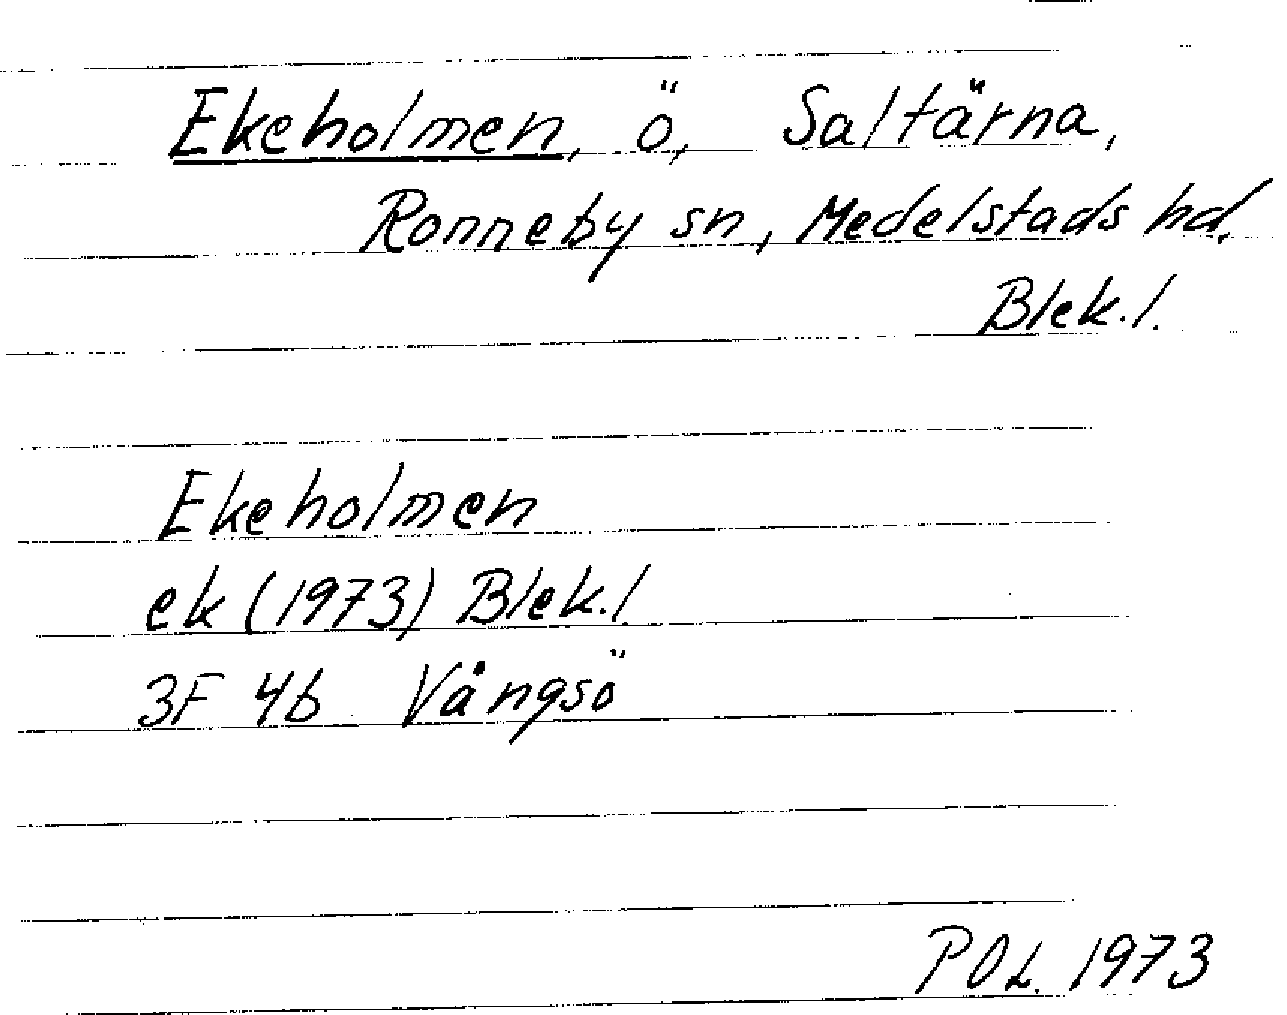 Ekeholmen, ö, Saltärna,
Ronneby sn, Medelstads hd.
Blek.l.
Ekeholmen
ek (1973) Blek.l.
3F 4b Vångsö
POL. 1973